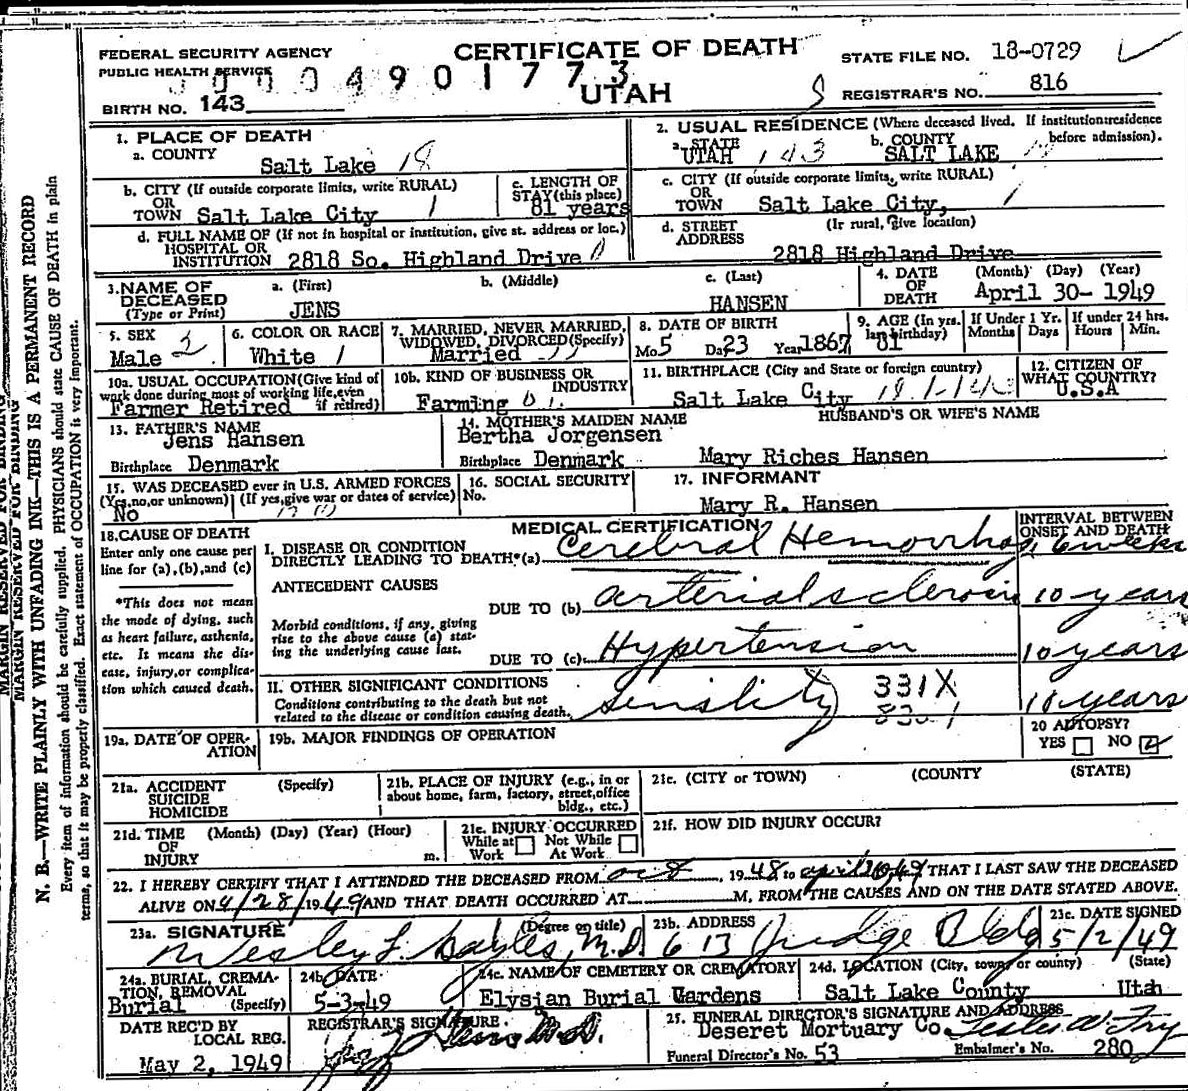 FEDERAL SECURITY AGENCY
PUBLIC HEALTH SERVICE
CERTIFICATE OF DEATH
UTAH
STATE FILE NO. 18-0729
REGISTRAR'S NO. 816
BIRTH NO. 143
0 4 9 0 1 7 7 3
1. PLACE OF DEATH
a. COUNTY
Salt Lake 18
b. CITY (If outside corporate limits, write RURAL)
OR
TOWN Salt Lake City 1
c. LENGTH OF
STAY (this place)
81 years
d. FULL NAME OF (If not in hospital or institution, give st. address or loc.)
HOSPITAL OR
INSTITUTION 2818 So. Highland Drive
2. USUAL RESIDENCE (Where deceased lived. If institution: residence
before admission).
a. STATE
UTAH 143
b. COUNTY
SALT LAKE
c. CITY (If outside corporate limits, write RURAL)
OR
TOWN Salt Lake City, 1
d. STREET (If rural, give location)
ADDRESS
2818 Highland Drive
3. NAME OF
DECEASED
(Type or Print)
a. (First)
JENS
b. (Middle)
c. (Last)
HANSEN
4. DATE
OF
DEATH
(Month) (Day) (Year)
April 30- 1949
5. SEX
Male
6. COLOR OR RACE
White 1
7. MARRIED, NEVER MARRIED,
WIDOWED, DIVORCED (Specify)
Married
8. DATE OF BIRTH
Mo 5 Da 23 Year 1867
9. AGE (In yrs.
last birthday)
81
If Under 1 Yr.
Months Days
If under 24 hrs.
Hours Min.
10a. USUAL OCCUPATION (Give kind of
work done during most of working life, even
if retired)
Farmer Retired
10b. KIND OF BUSINESS OR
INDUSTRY
Farming
11. BIRTHPLACE (City and State or foreign country)
Salt Lake City
12. CITIZEN OF
WHAT COUNTRY?
U.S.A
13. FATHER'S NAME
Jens Hansen
Birthplace Denmark
14. MOTHER'S MAIDEN NAME
Bertha Jorgensen
Birthplace Denmark
HUSBAND'S OR WIFE'S NAME
Mary Riches Hansen
15. WAS DECEASED ever in U.S. ARMED FORCES
(Yes, no, or unknown) (If yes, give war or dates of service)
No
16. SOCIAL SECURITY
No.
17. INFORMANT
Mary R. Hansen
18. CAUSE OF DEATH
Enter only one cause per
line for (a), (b), and (c)
*This does not mean
the mode of dying, such
as heart failure, asthenia,
etc. It means the dis-
ease, injury, or complica-
tion which caused death.
MEDICAL CERTIFICATION
INTERVAL BETWEEN
ONSET AND DEATH
I. DISEASE OR CONDITION
DIRECTLY LEADING TO DEATH*(a) Cerebral Hemorrhage 6 weeks
ANTECEDENT CAUSES
DUE TO (b) arterialsclerosis 10 years
Morbid conditions, if any, giving
rise to the above cause (a) stat-
ing the underlying cause last.
DUE TO (c) Hypertension 10 years
II. OTHER SIGNIFICANT CONDITIONS
Conditions contributing to the death but not
related to the disease or condition causing death.
senility 331X 10 years
19a. DATE OF OPER-
ATION
19b. MAJOR FINDINGS OF OPERATION
20 AUTOPSY?
YES NO
21a. ACCIDENT (Specify)
SUICIDE
HOMICIDE
21b. PLACE OF INJURY (e.g., in or
about home, farm, factory, street, office
bldg., etc.)
21c. (CITY or TOWN) (COUNTY) (STATE)
21d. TIME (Month) (Day) (Year) (Hour)
OF
INJURY m.
21e. INJURY OCCURRED
While at Not While
Work At Work
21f. HOW DID INJURY OCCUR?
22. I HEREBY CERTIFY THAT I ATTENDED THE DECEASED FROM oct , 1948 to april 1949 THAT I LAST SAW THE DECEASED
ALIVE ON 4/28/1949 AND THAT DEATH OCCURRED AT M, FROM THE CAUSES AND ON THE DATE STATED ABOVE.
23a. SIGNATURE (Degree or title)
Wesley F. Bayles, M.D.
23b. ADDRESS
613 Judge Bldg
23c. DATE SIGNED
5/2/49
24a. BURIAL, CREMA-
TION, REMOVAL
Burial (Specify)
24b. DATE
5-3-49
24c. NAME OF CEMETERY OR CREMATORY
Elysian Burial Gardens
24d. LOCATION (City, town, or county) (State)
Salt Lake County Utah
DATE REC'D BY
LOCAL REG.
May 2, 1949
REGISTRAR'S SIGNATURE
25. FUNERAL DIRECTOR'S SIGNATURE AND ADDRESS
Deseret Mortuary Co.
Funeral Director's No. 53 Embalmer's No. 280
MARGIN RESERVED FOR BINDING
N. B.—WRITE PLAINLY WITH UNFADING INK—THIS IS A PERMANENT RECORD
Every item of information should be carefully supplied. PHYSICIANS should state CAUSE OF DEATH in plain
terms, so that it may be properly classified. Exact statement of OCCUPATION is very important.